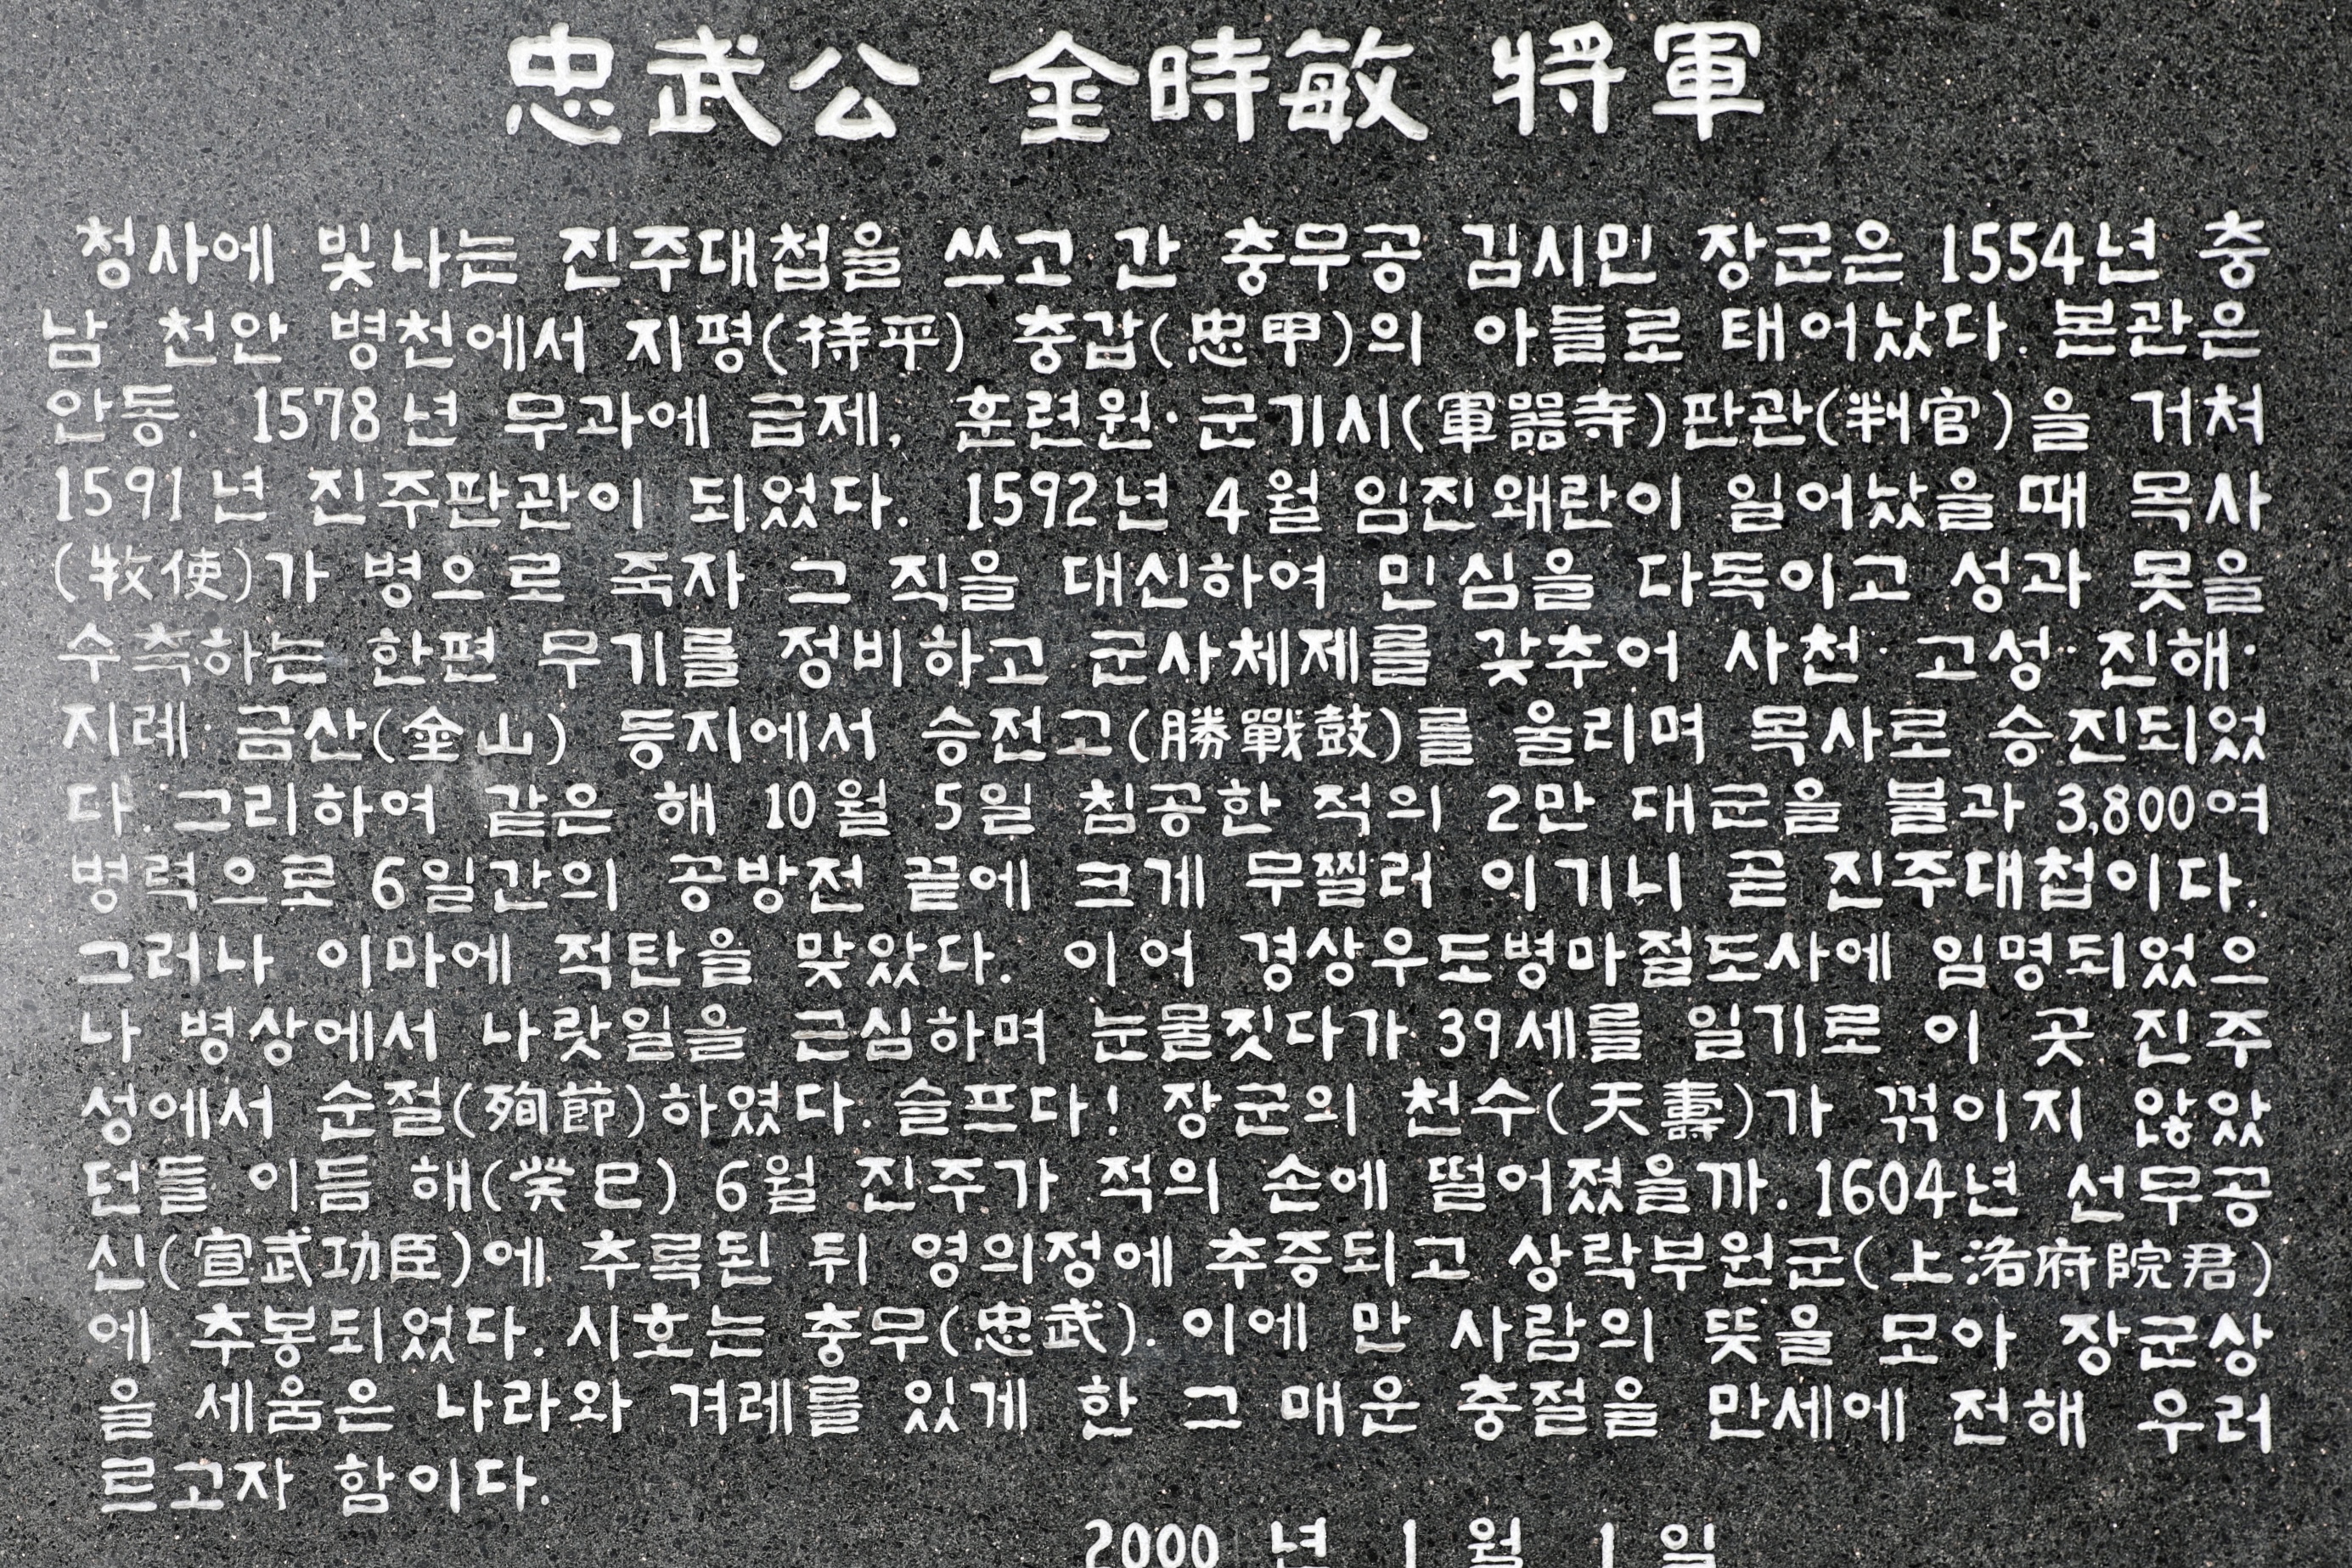 忠武公 金時敏 將軍
청사에 빛나는 진주대첩을 쓰고 간 충무공 김시민 장군은 1554년 충
남 천안 병천에서 지평(持平) 충갑(忠甲)의 아들로 태어났다. 본관은
안동. 1578년 무과에 급제, 훈련원·군기시(軍器寺)판관(判官)을 거쳐
1591년 진주판관이 되었다. 1592년 4월 임진왜란이 일어났을때 목사
(牧使)가 병으로 죽자 그 직을 대신하여 민심을 다독이고 성과 못을
수축하는 한편 무기를 정비하고 군사체제를 갖추어 사천·고성·진해·
지례·금산(金山) 등지에서 승전고(勝戰鼓)를 울리며 목사로 승진되었
다 그리하여 같은 해 10월 5일 침공한 적의 2만 대군을 불과 3,800여
병력으로 6일간의 공방전 끝에 크게 무찔러 이기니 곧 진주대첩이다.
그러나 이마에 적탄을 맞았다. 이어 경상우도병마절도사에 임명되었으
나 병상에서 나랏일을 근심하며 눈물짓다가 39세를 일기로 이 곳 진주
성에서 순절(殉節)하였다. 슬프다! 장군의 천수(天壽)가 꺾이지 않았
던들 이듬 해(癸巳) 6월 진주가 적의 손에 떨어졌을까. 1604년 선무공
신(宣武功臣)에 추록된 뒤 영의정에 추증되고 상락부원군(上洛府院君)
에 추봉되었다. 시호는 충무(忠武). 이에 만 사람의 뜻을 모아 장군상
을 세움은 나라와 겨레를 있게 한 그 매운 충절을 만세에 전해 우러
르고자 함이다.
2000 년 1 월 1 일